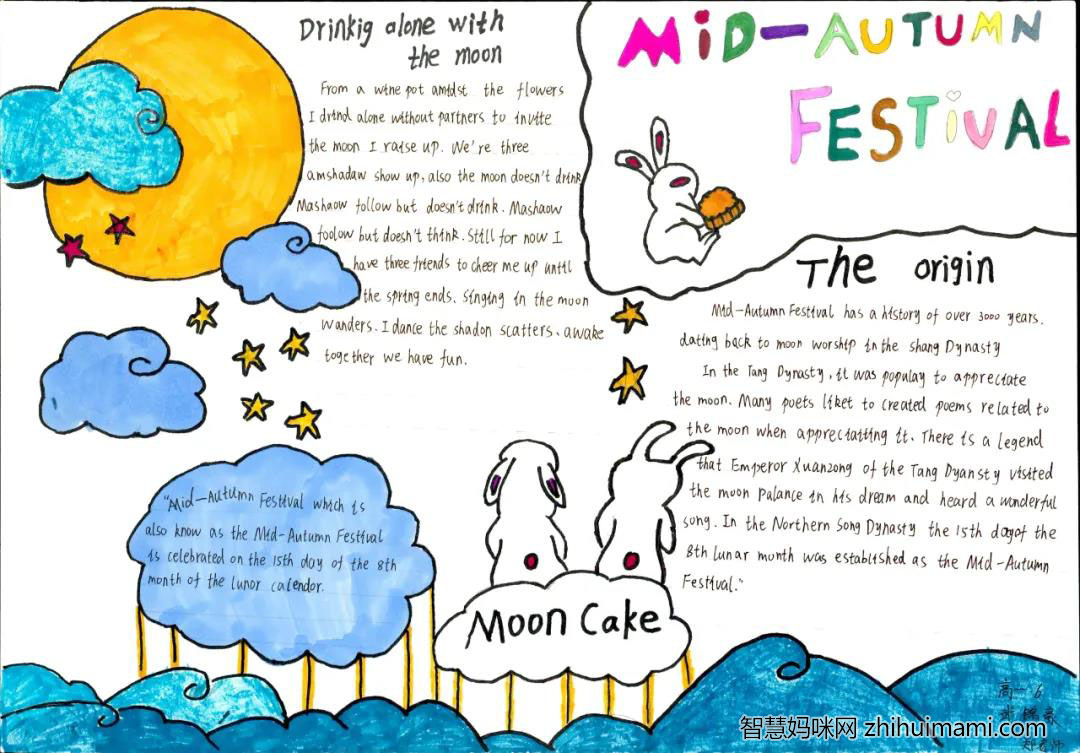 Drinkig alone with
the moon
From a wine pot amidst the flowers
I drind alone without partners to invite
the moon I raise up. We're three
amshadaw show up, also the moon doesn't drink
Mashaow follow but doesn't drink. Mashaow
foolow but doesn't think. Still for now I
have three friends to cheer me up until
the spring ends. singing in the moon
wanders. I dance the shadon scatters. awake
together we have fun.
MiD-AUTUMN
FESTiVAL
The origin
Mid-Autumn Festival has a history of over 3000 years.
dating back to moon worship in the shang Dynasty
In the Tang Dynasty, it was populay to appreciate
the moon. Many poets liket to created poems related to
the moon when appreciatiing it. There is a legend
that Emperor Xuanzong of the Tang Dyansty visited
the moon Palance in his dream and heard a wonderful
song. In the Northern Song Dynasty the 15th dayof the
8th lunar month was established as the Mid-Autumn
Festival."
"Mid-Autumn Festival which is
also know as the Mid-Autumn Festival
is celebrated on the 15th day of the 8th
month of the lunor calendor.
Moon Cake
高一6
智慧妈咪网 zhihuimami.com